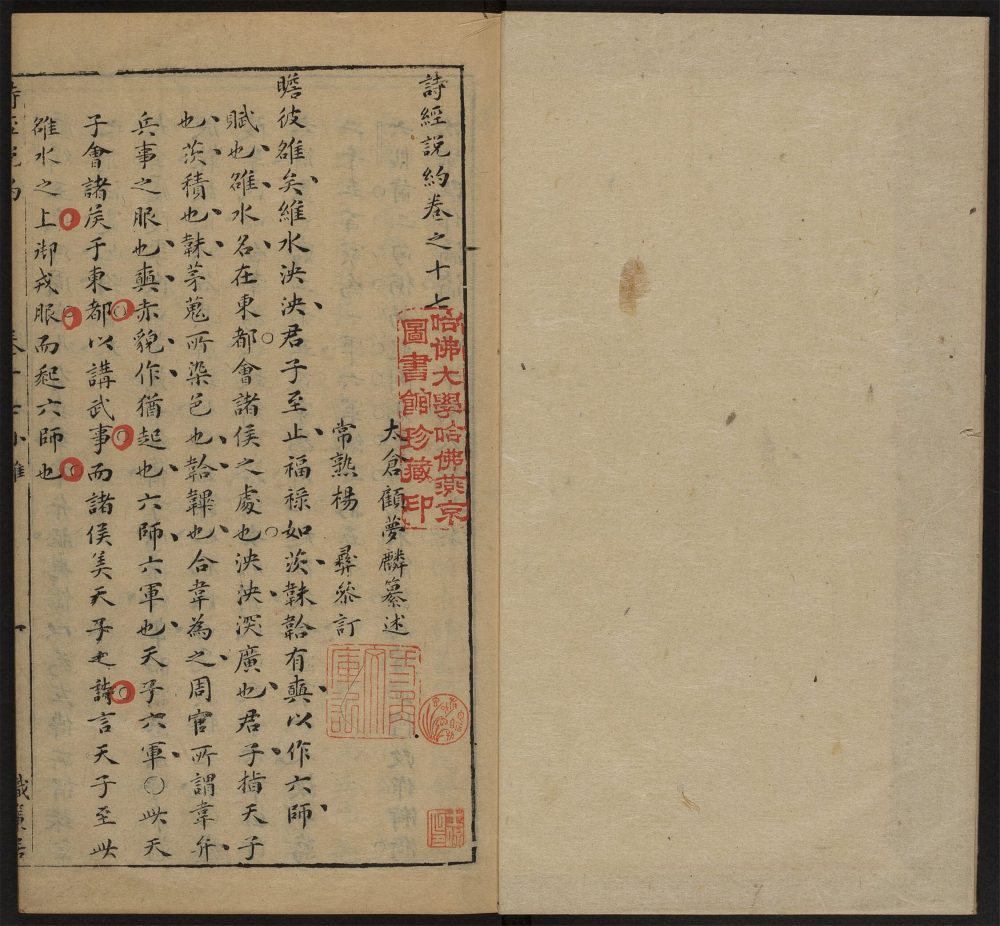 詩經説約卷之十七
太倉顧夢麟纂述
常熟楊 彝叅訂
瞻彼雒矣維水泱泱君子至止福祿如茨韎韐有奭以作六師
賦也雒水名在東都會諸侯之處也泱泱深廣也君子指天子
也茨積也韎茅蒐所染色也韐韠也合韋為之周官所謂韋弁
兵事之服也奭赤貌作猶起也六師六軍也天子六軍○此天
子會諸侯于東都以講武事而諸侯美天子之詩言天子至此
雒水之上御戎服而起六師也
詩經說約 卷十七小雅 一 織簾居
哈佛大學哈佛燕京
圖書館珍藏印